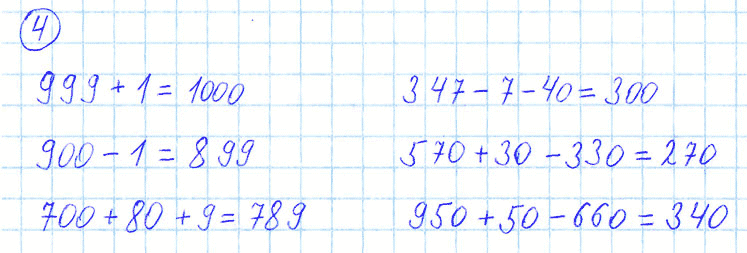 4
999 + 1 = 1000 347 - 7 - 40 = 300
900 - 1 = 899 570 + 30 - 330 = 270
700 + 80 + 9 = 789 950 + 50 - 660 = 340